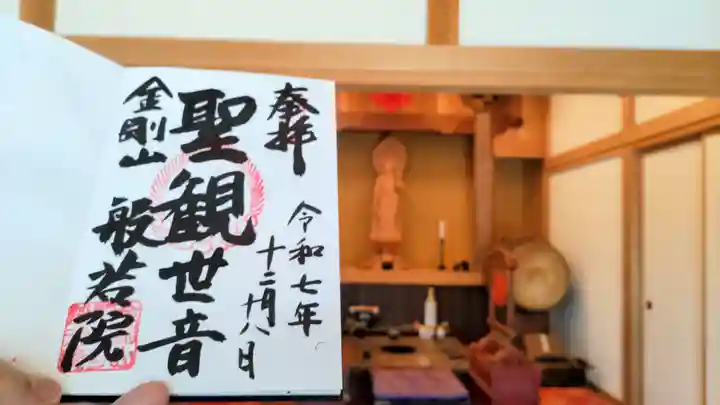 奉拝
令和七年
十二月廿八日
聖観世音
金剛山
般若院